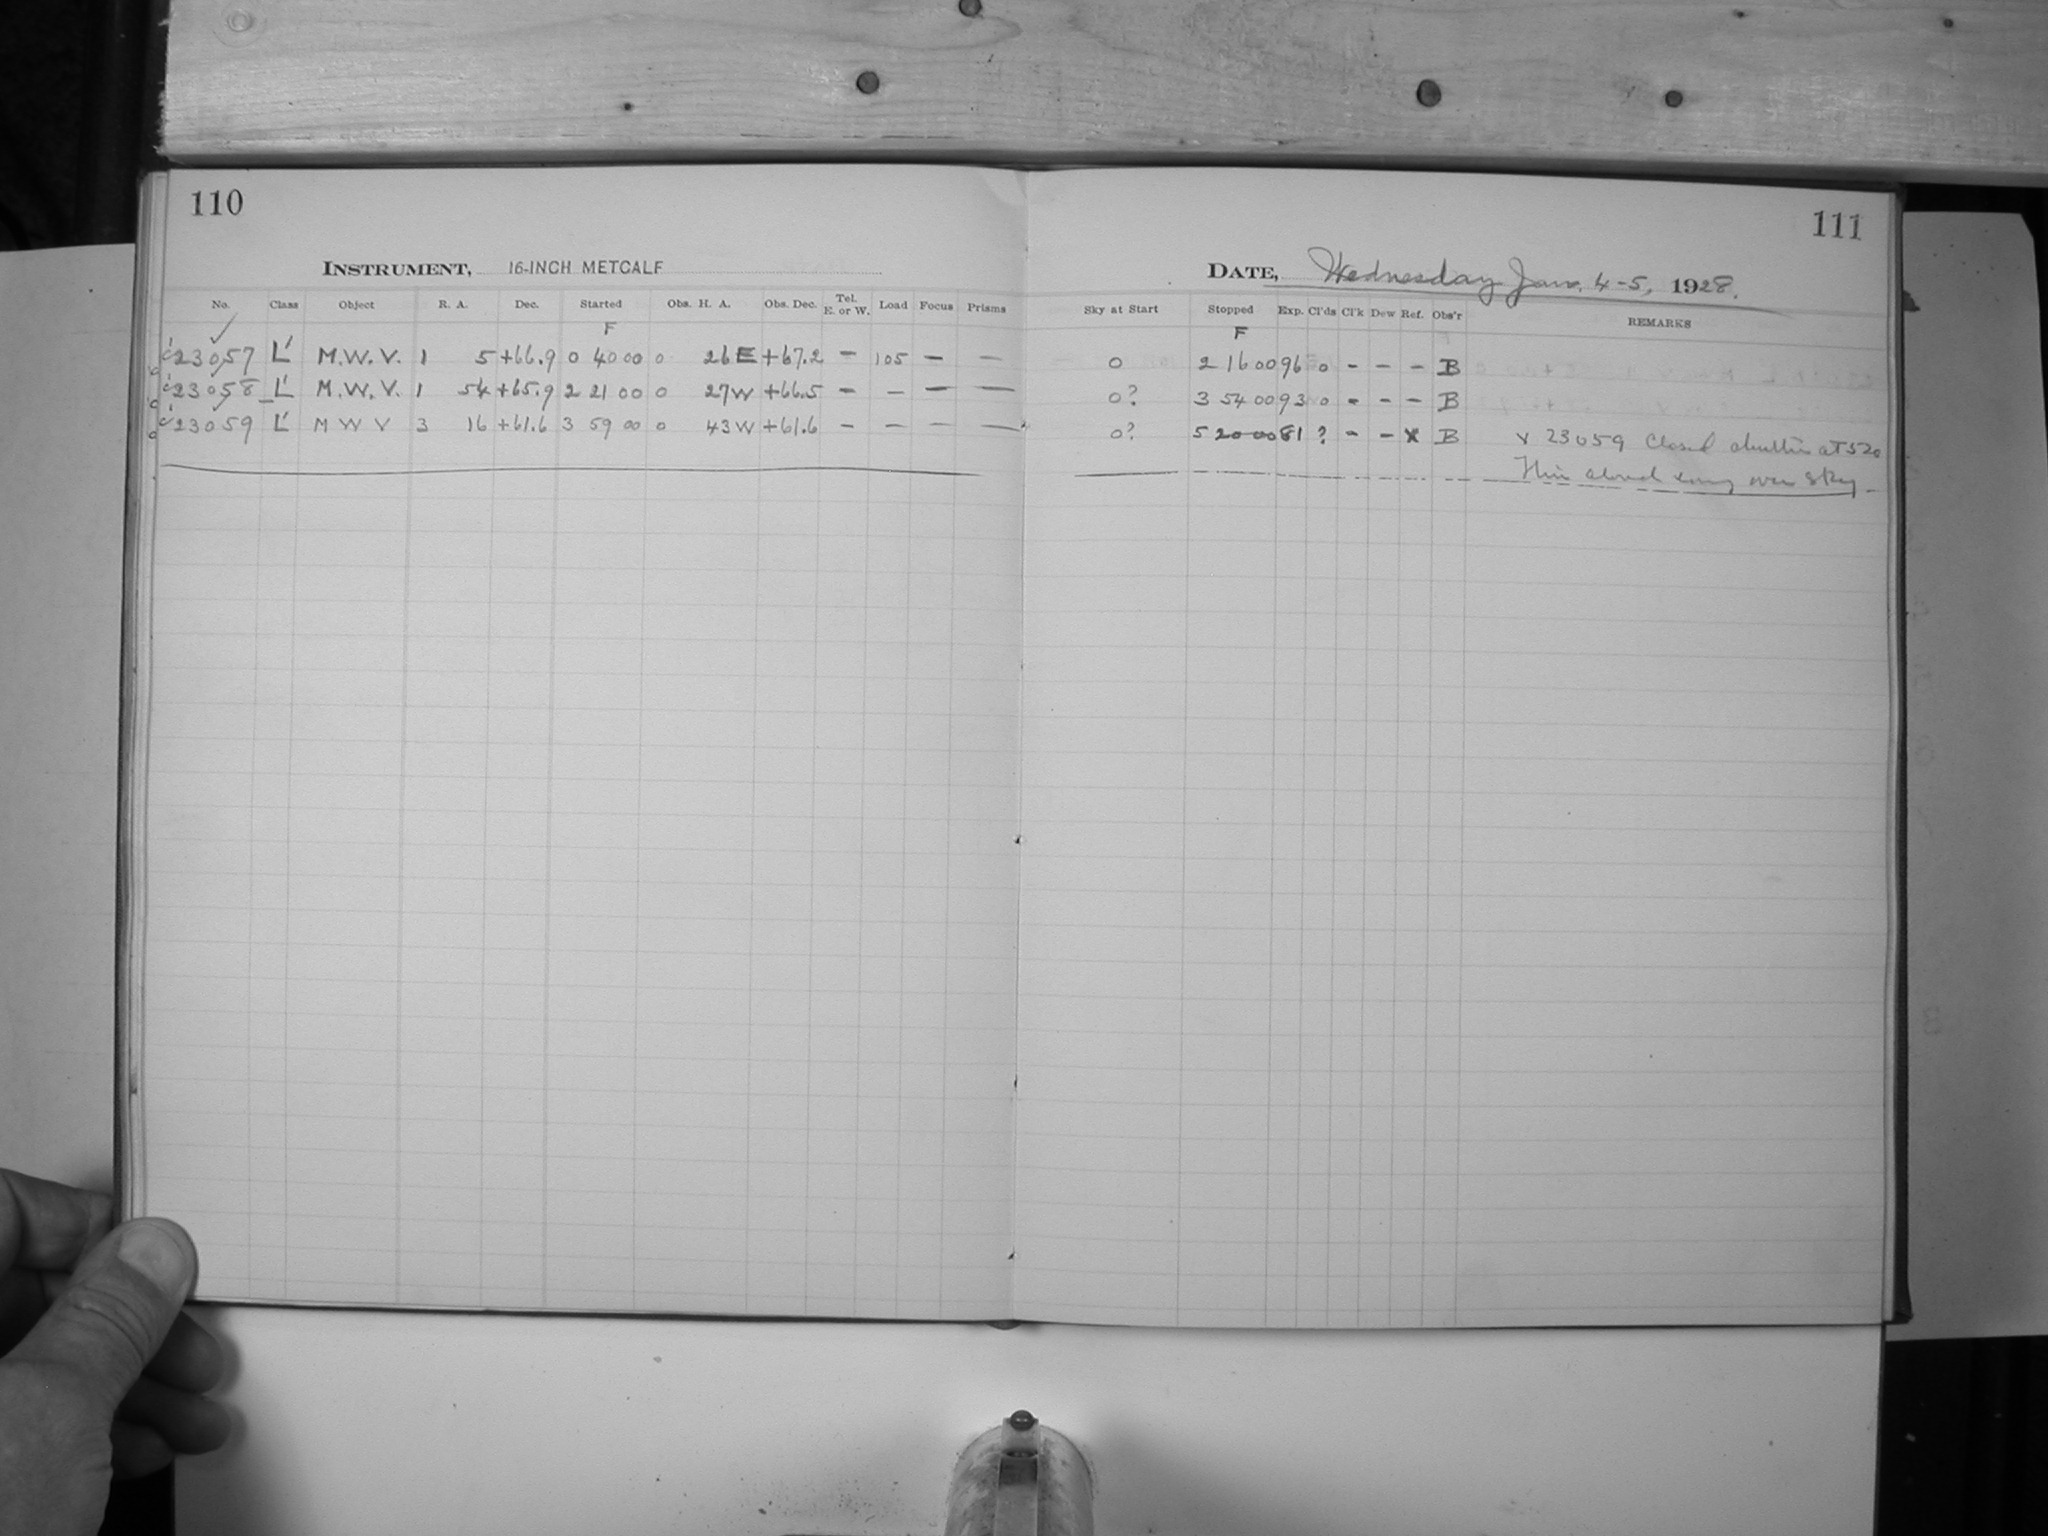 110
INSTRUMENT, 16-INCH METCALF
No. Class Object R. A. Dec. Started Obs. H. A. Obs. Dec. Tel. E. or W. Load Focus Prisms
F
23057 L' M.W.V. 1 5 +66.9 0 40 00 0 26 E +67.2 – 105 – –
23058 L' M.W.V. 1 54 +65.9 2 21 00 0 27 W +66.5 – – – –
23059 L' M W V 3 16 +61.6 3 59 00 0 43 W +61.6 – – – –
111
DATE, Wednesday Jan. 4-5, 1928.
Sky at Start Stopped Exp. Cl'ds Cl'k Dew Ref. Obs'r REMARKS
F
0 2 16 00 96 0 - - - B
0? 3 54 00 93 0 - - - B
0? 5 20 00 81 ? - - x B x 23059 Closed shutter at 5 20
Thin cloud over sky